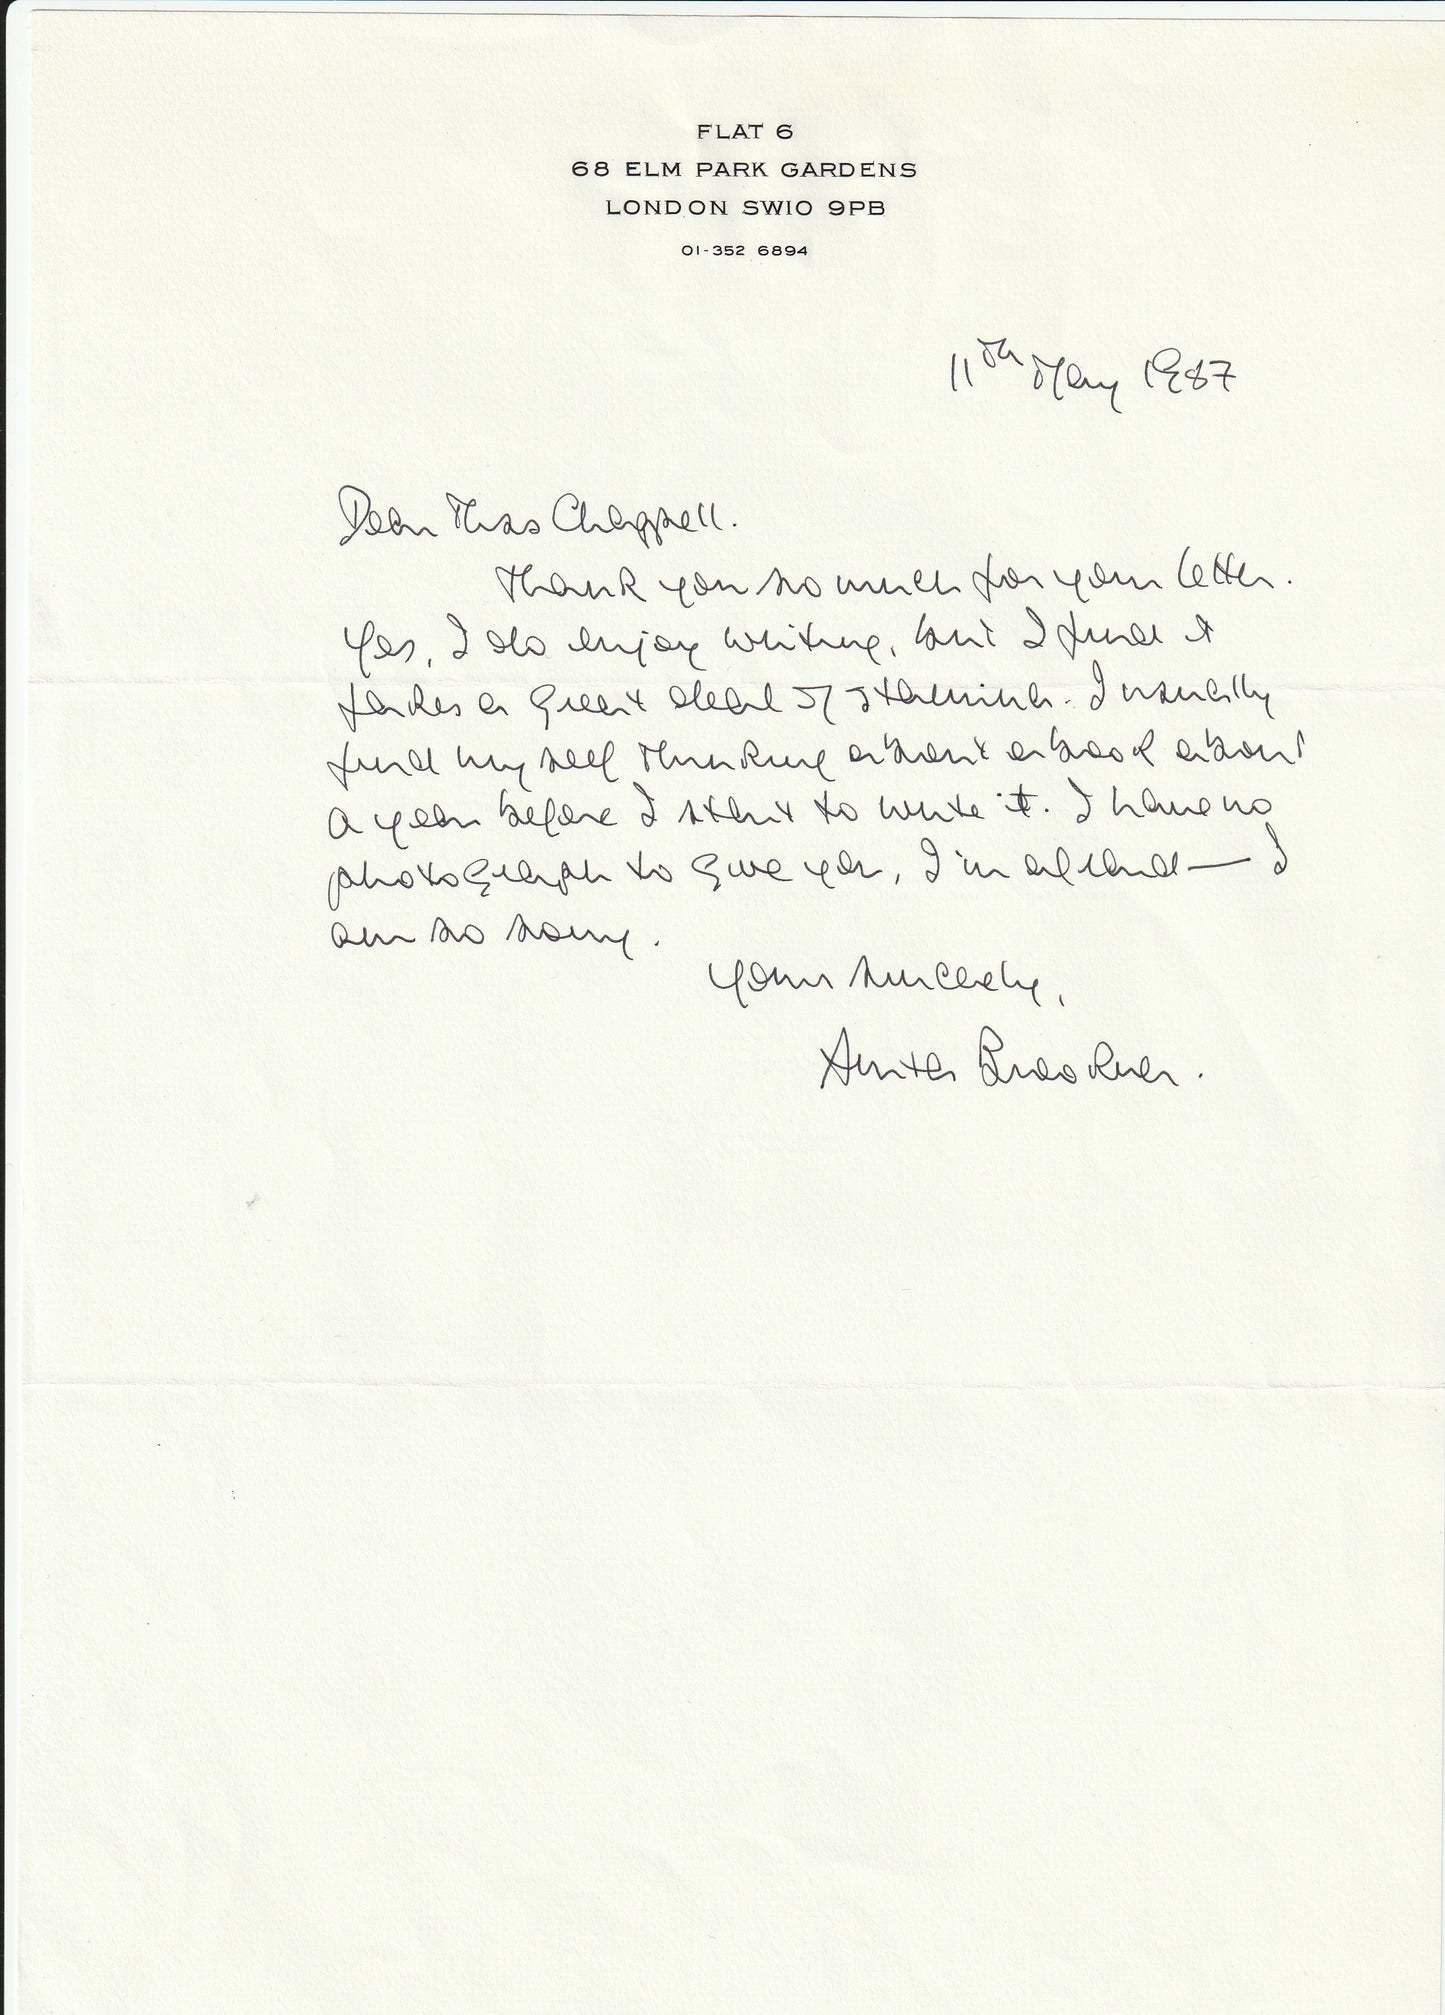 FLAT 6
68 ELM PARK GARDENS
LONDON SW10 9PB
01-352 6894
11th May 1987
Dear Miss Chappell.
Thank you so much for your letter.
Yes, I do enjoy writing, but I find it
takes a great deal of stamina. I usually
find myself thinking about a book about
a year before I start to write it. I have no
photograph to give you, I'm afraid — I
am so sorry.
Yours sincerely,
Anita Brookner.